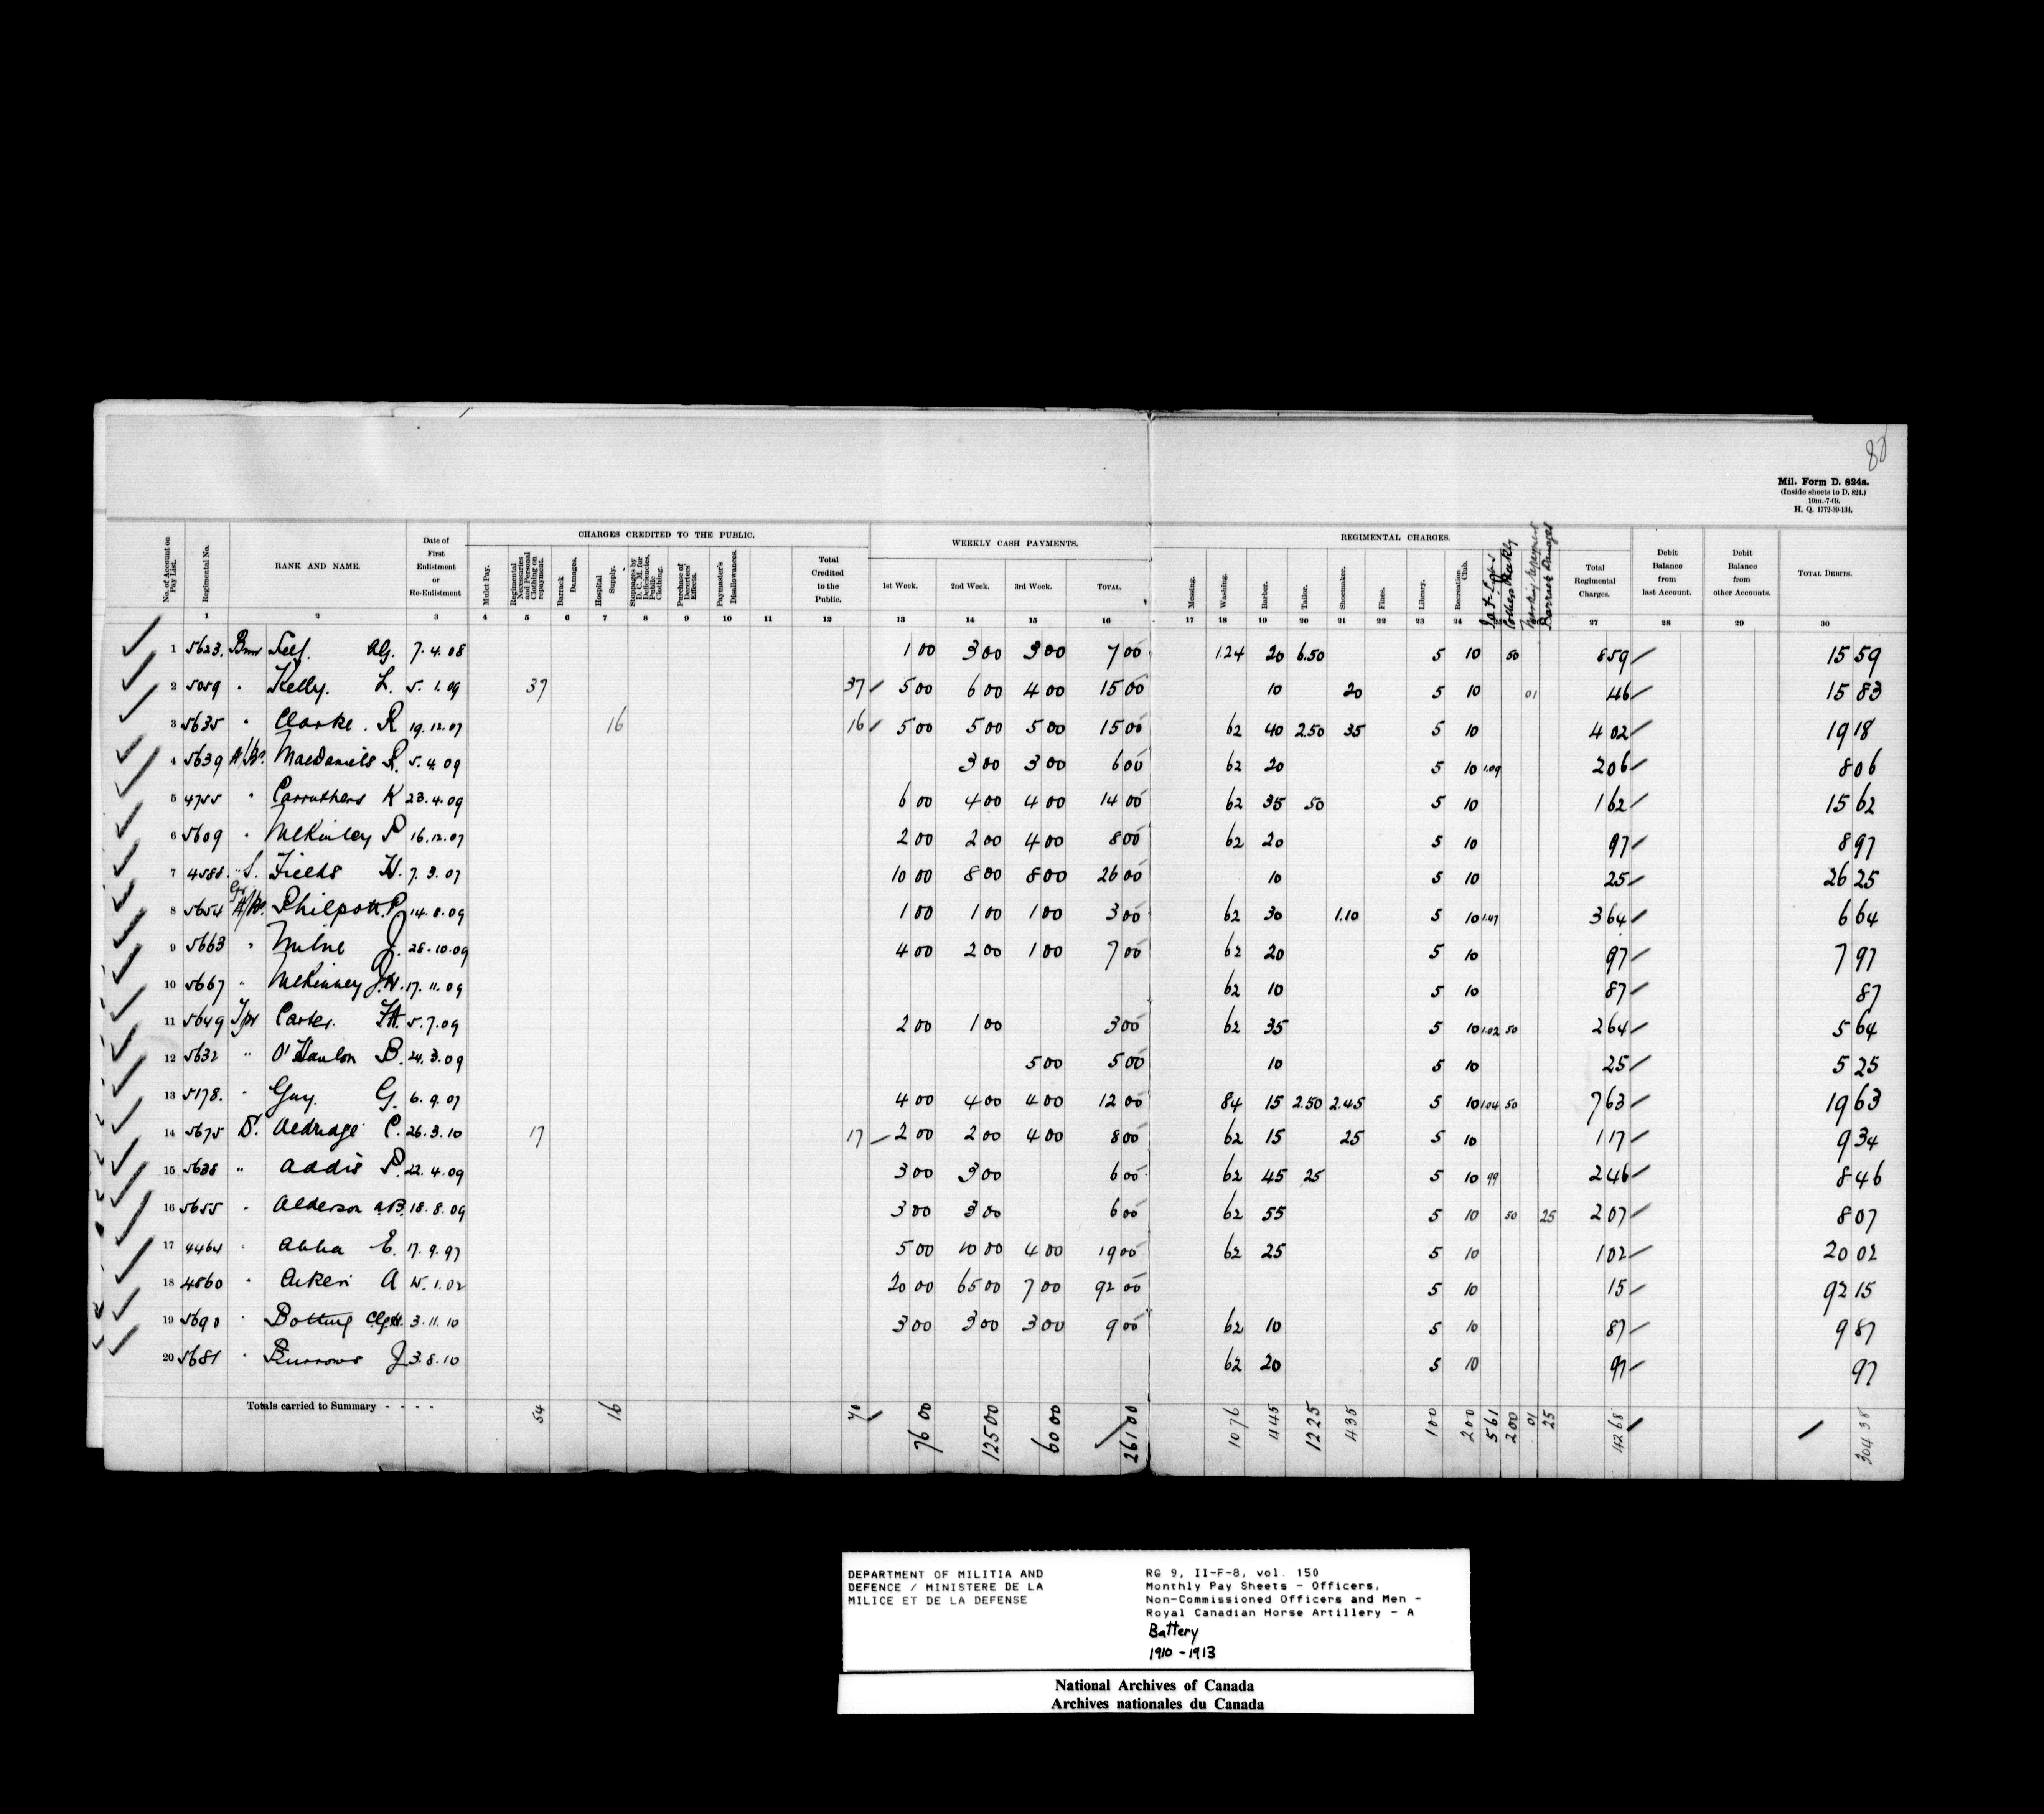 80
Mil. Form D. 824a.
(Inside sheets to D. 824.)
10m.-7-09.
H. Q. 1772-39-134.
CHARGES CREDITED TO THE PUBLIC. WEEKLY CASH PAYMENTS. REGIMENTAL CHARGES.
No. of Account on Pay List. Regimental No. RANK AND NAME. Date of First Enlistment or Re-Enlistment Mulct Pay. Regimental Necessaries and Personal Clothing on repayment. Barrack Damages. Hospital Supply. Stoppages by D. C. M. for Deficiencies, Public Clothing. Purchase of Deserters' Effects. Paymaster's Disallowances. Total Credited to the Public. 1st Week. 2nd Week. 3rd Week. TOTAL. Messing. Washing. Barber. Tailor. Shoemaker. Fines. Library. Recreation Club. Barrack Damages Total Regimental Charges. Debit Balance from last Account. Debit Balance from other Accounts. TOTAL DEBITS.
1 2 3 4 5 6 7 8 9 10 11 12 13 14 15 16 17 18 19 20 21 22 23 24 25 27 28 29 30
1 5623. Bmr Self. 7.4.08 1 00 3 00 3 00 7 00 1.24 20 6.50 5 10 50 8 59 15 59
2 5059 " Kelly. L. 5.1.09 37 37 5 00 6 00 4 00 15 00 10 20 5 10 01 46 15 83
3 5635 " Clarke. R 19.12.07 16 16 5 00 5 00 5 00 15 00 62 40 2.50 35 5 10 4 02 19 18
4 5639 A/Br. MacDaniels R. 5.4.09 3 00 3 00 6 00 62 20 5 10 1.09 2 06 8 06
5 4755 " Carruthers K 23.4.09 6 00 4 00 4 00 14 00 62 35 50 5 10 1 62 15 62
6 5609 " McKinley P 16.12.07 2 00 2 00 4 00 8 00 62 20 5 10 97 8 97
7 4588. " S. Fields H. 7.3.07 10 00 8 00 8 00 26 00 10 5 10 25 26 25
8 5654 Gr A/Br. Philpott. P. 14.8.09 1 00 1 00 1 00 3 00 62 30 1.10 5 10 1.47 3 64 6 64
9 5663 " Milne J. 28.10.09 4 00 2 00 1 00 7 00 62 20 5 10 97 7 97
10 5667 " McKinney J.H. 17.11.09 62 10 5 10 87 87
11 5649 Tpr Carter. 5.7.09 2 00 1 00 3 00 62 35 5 10 1.02 50 2 64 5 64
12 5632 " O'Hanlon B. 24.3.09 5 00 5 00 10 5 10 25 5 25
13 5178. " Guy. G. 6.9.07 4 00 4 00 4 00 12 00 84 15 2.50 2.45 5 10 1.04 50 7 63 19 63
14 5675 D. Aldridge C. 26.3.10 17 17 2 00 2 00 4 00 8 00 62 15 25 5 10 1 17 9 34
15 5638 " Addis P. 22.4.09 3 00 3 00 6 00 62 45 25 5 10 99 2 46 8 46
16 5655 " Alderson 18.8.09 3 00 3 00 6 00 62 55 5 10 50 25 2 07 8 07
17 4464 " E. 17.9.97 5 00 10 00 4 00 19 00 62 25 5 10 1 02 20 02
18 4860 " Aiken A 1.02 20 00 65 00 7 00 92 00 5 10 15 92 15
19 5690 " Botting 3.11.10 3 00 3 00 3 00 9 00 62 10 5 10 87 9 87
20 5681 " Burrows J 3.8.10 62 20 5 10 97 97
Totals carried to Summary - - - - 54 16 70 76 00 125 00 60 00 261 00 10 76 4 45 12 25 4 35 1 00 2 00 5 61 2 00 01 25 42 68 304 38
DEPARTMENT OF MILITIA AND
DEFENCE / MINISTERE DE LA
MILICE ET DE LA DEFENSE
RG 9, II-F-8, vol. 150
Monthly Pay Sheets - Officers,
Non-Commissioned Officers and Men -
Royal Canadian Horse Artillery - A
Battery
1910 - 1913
National Archives of Canada
Archives nationales du Canada